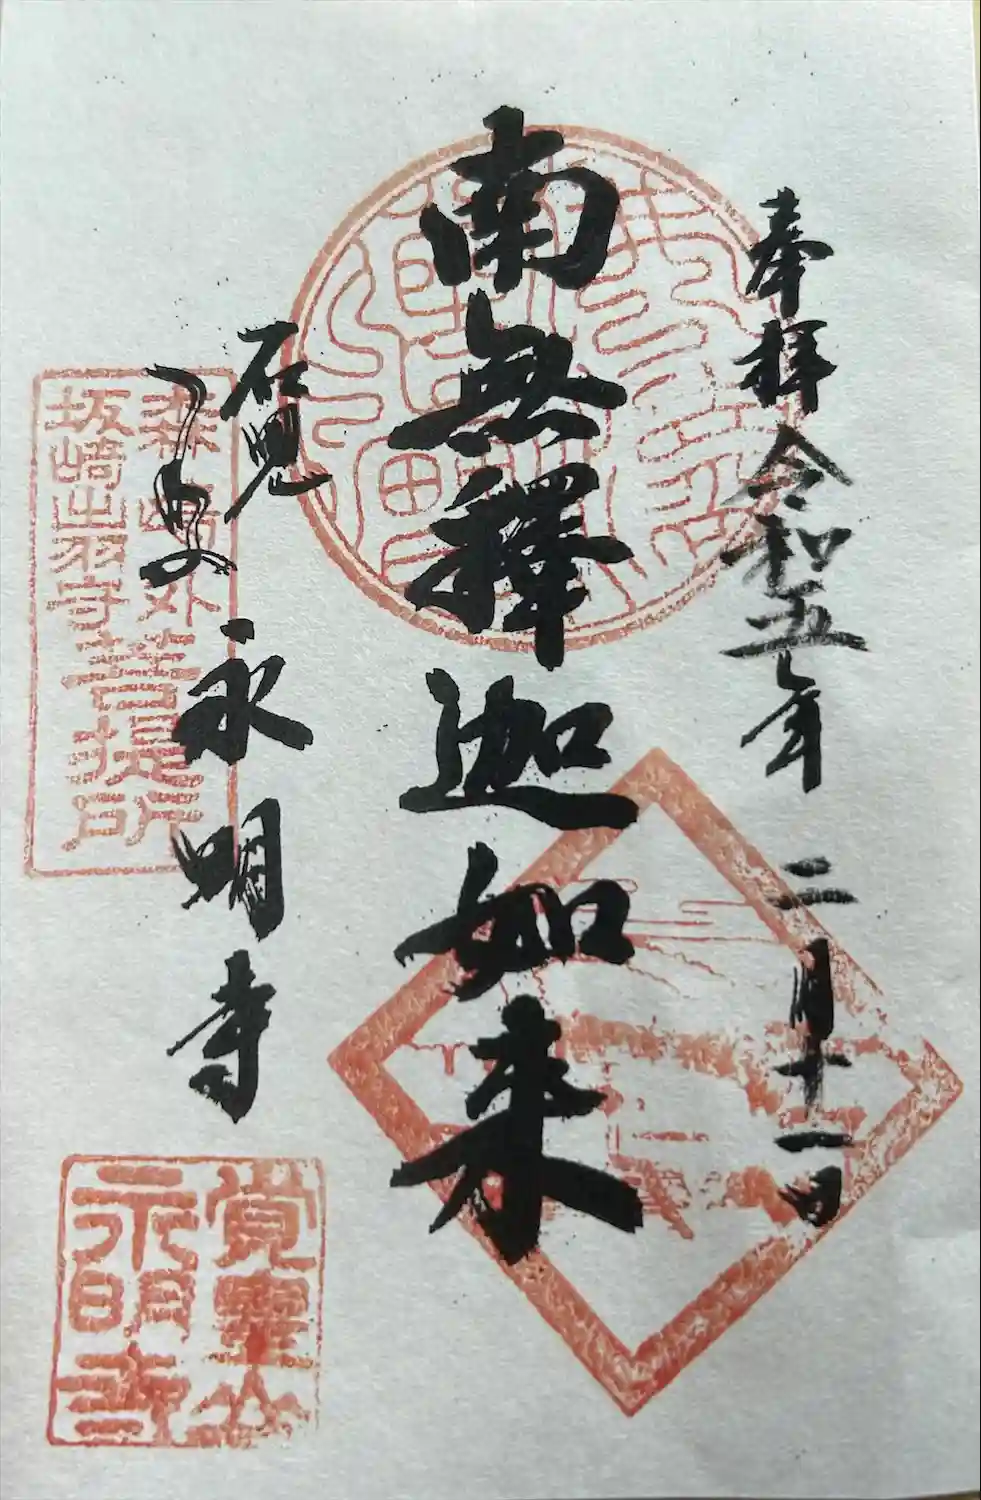 奉拝 令和五年 二月十一日
南無釋迦如来
石見
永明寺
森鴎外
坂崎出羽守
菩提所
覚皇山
永明寺